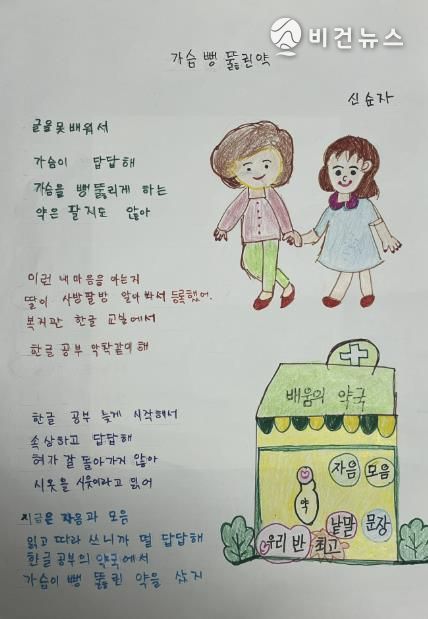 비건뉴스
가슴 뻥 뚫린약
신순자
글을 못 배워서
가슴이 답답해
가슴을 뻥 뚫리게 하는
약은 팔지도 않아
이런 내 마음을 아는지
딸이 사방팔방 알아봐서 등록했어.
복지관 한글 교실에서
한글 공부 악착같이 해
한글 공부 늦게 시작해서
속상하고 답답해
혀가 잘 돌아가지 않아
시옷을 시웃이라고 읽어
지금은 자음과 모음
읽고 따라 쓰니까 덜 답답해
한글 공부의 약국에서
가슴이 뻥 뚫린 약을 샀지
배움의 약국
자음
모음
약
낱말
문장
우리 반
최고